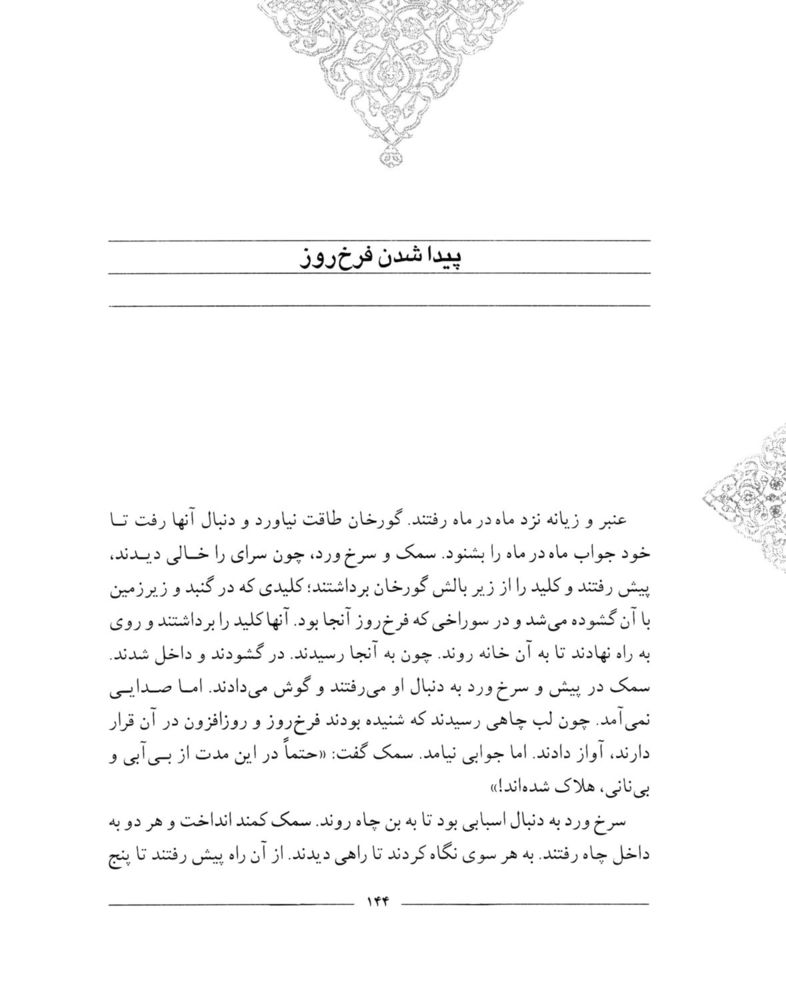 پیدا شدن فرخ‌روز
عنبر و زیانه نزد ماه در ماه رفتند. گورخان طاقت نیاورد و دنبال آنها رفت تا
خود جواب ماه در ماه را بشنود. سمک و سرخ ورد، چون سرای را خالی دیدند،
پیش رفتند و کلید را از زیر بالش گورخان برداشتند؛ کلیدی که در گنبد و زیرزمین
با آن گشوده می‌شد و در سوراخی که فرخ‌روز آنجا بود. آنها کلید را برداشتند و روی
به راه نهادند تا به آن خانه روند. چون به آنجا رسیدند. در گشودند و داخل شدند.
سمک در پیش و سرخ ورد به دنبال او می‌رفتند و گوش می‌دادند. اما صدایی
نمی‌آمد. چون لب چاهی رسیدند که شنیده بودند فرخ‌روز و روزافزون در آن قرار
دارند، آواز دادند. اما جوابی نیامد. سمک گفت: «حتماً در این مدت از بی‌آبی و
بی‌نانی، هلاک شده‌اند!»
سرخ ورد به دنبال اسبابی بود تا به بن چاه روند. سمک کمند انداخت و هر دو به
داخل چاه رفتند. به هر سوی نگاه کردند تا راهی دیدند. از آن راه پیش رفتند تا پنج
۱۴۴